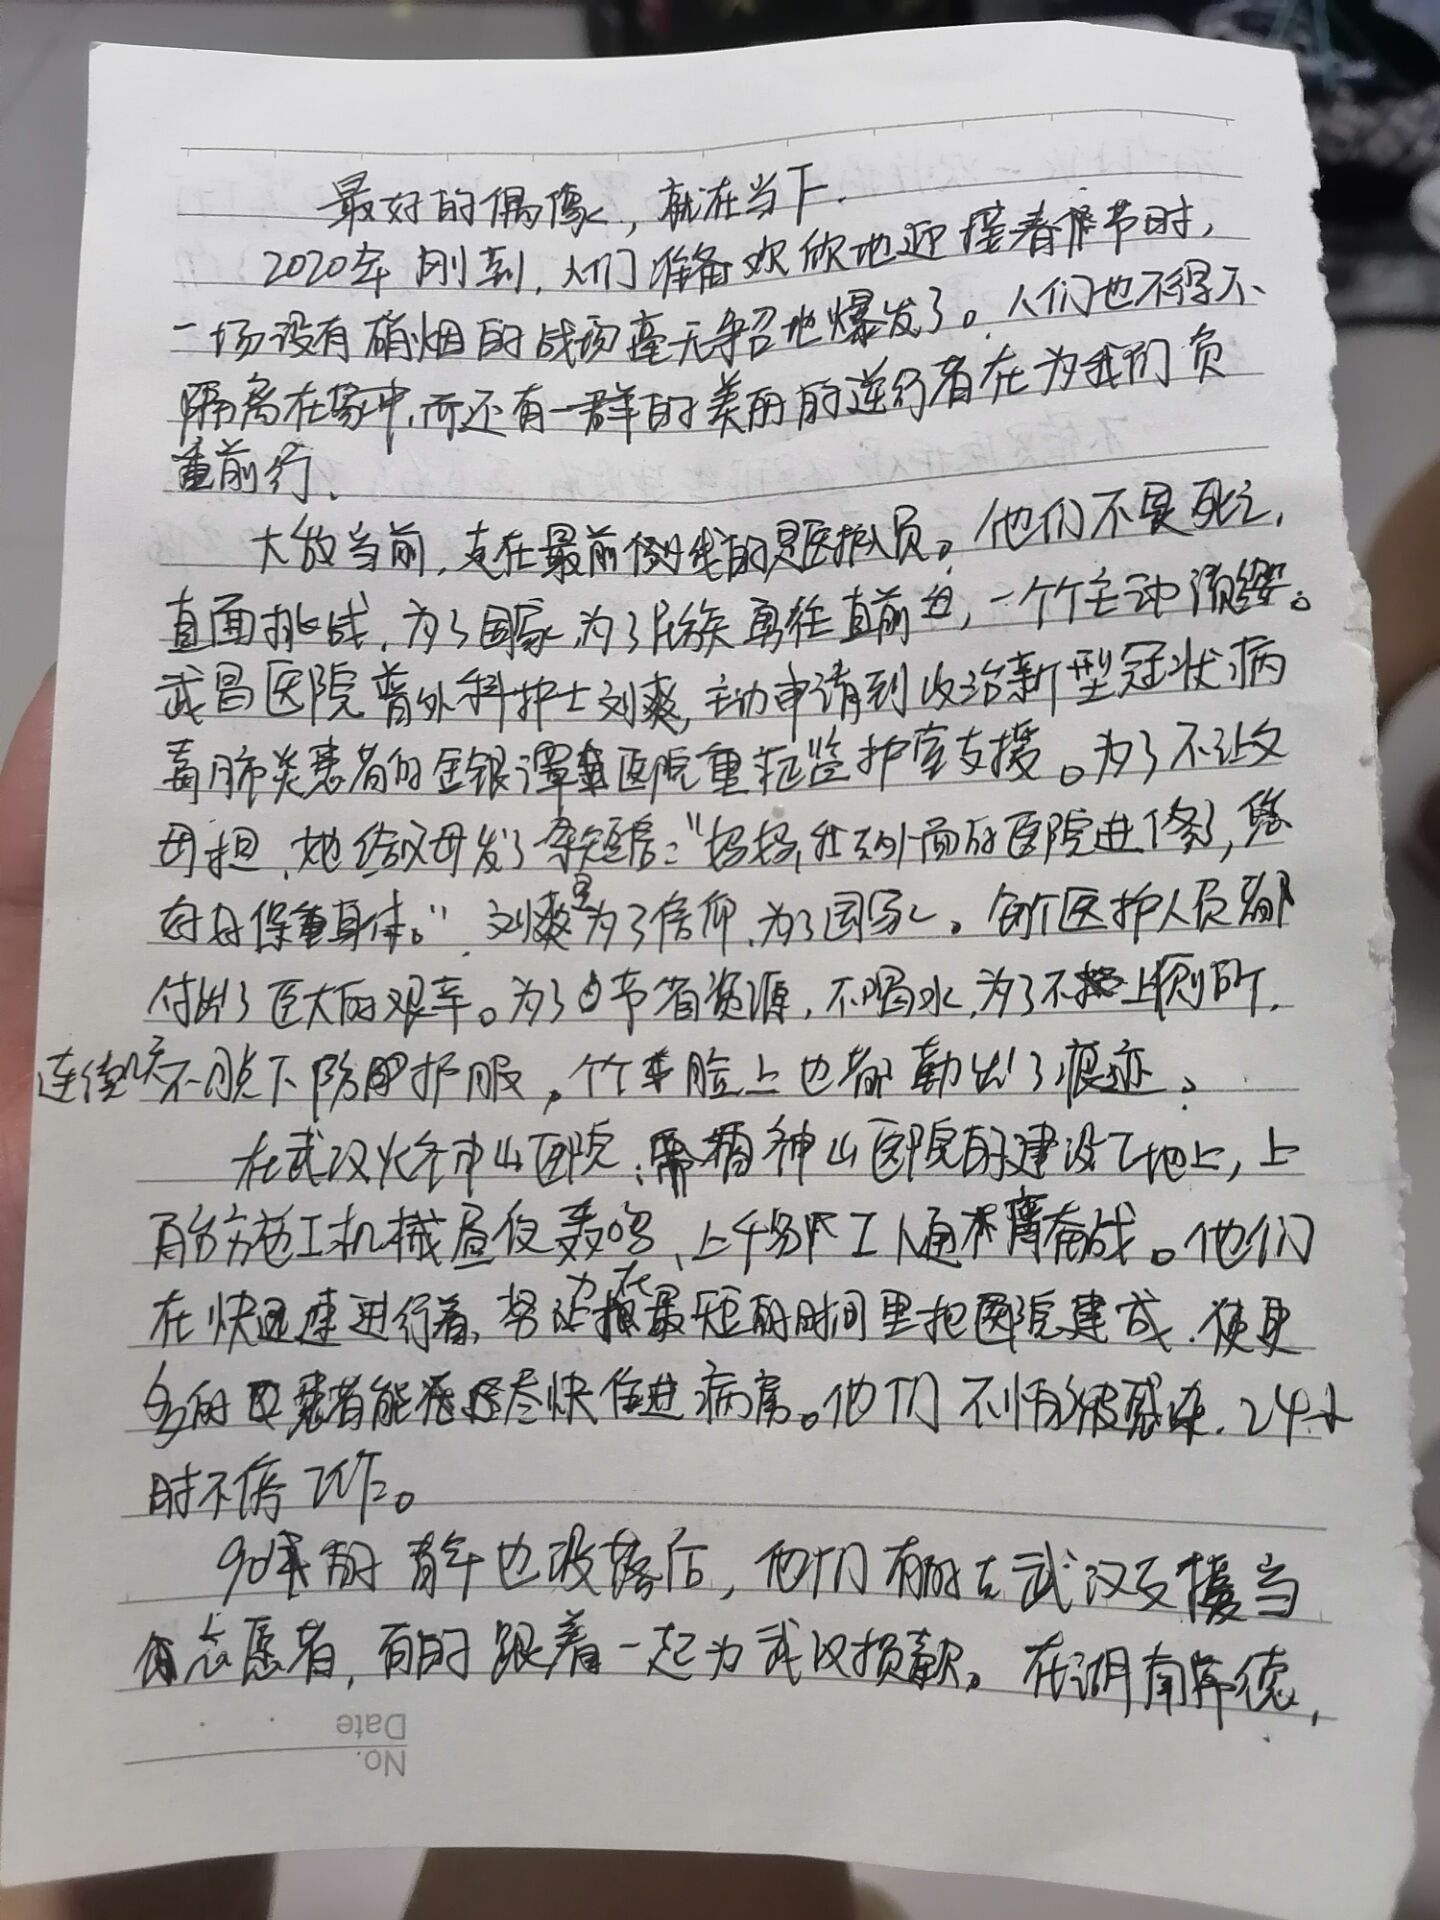 最好的偶像，就在当下.
2020年刚到，人们准备欢欣地迎接春节时，
一场没有硝烟的战场毫无征召地爆发了。人们也不得不
隔离在家中,而还有一群的美丽的逆行者在为我们负
重前行.
大敌当前,走在最前线的是医护人员。他们不畏死亡,
直面挑战,为了国家,为了民族勇往直前,一个个主动请缨。
武昌医院普外科护士刘爽,主动申请到收治新型冠状病
毒肺炎患者的金银潭医院重症监护室支援。为了不让父
母担,她给父母发了条短信:“妈妈,我到外面的医院进修了,您
好好保重身体。”刘爽是为了信仰,为了国家。每个医护人员都
付出了巨大的艰辛。为了节省资源,不喝水,为了不上厕所,
连续几天不脱下防护服,个个脸上也都勒出了痕迹。
在武汉火神山医院,雷神山医院的建设工地上,上
百台施工机械昼夜轰鸣,上千名工人通宵奋战。他们
在快速进行着,努力让在最短的时间里把医院建成,使更
多的患者能尽快住进病房。他们不怕被感染,24小
时不停工作。
90末的青年也没落后,他们有的去武汉支援当
志愿者,有的跟着一起为武汉捐款。在湖南常德,
Date
No.